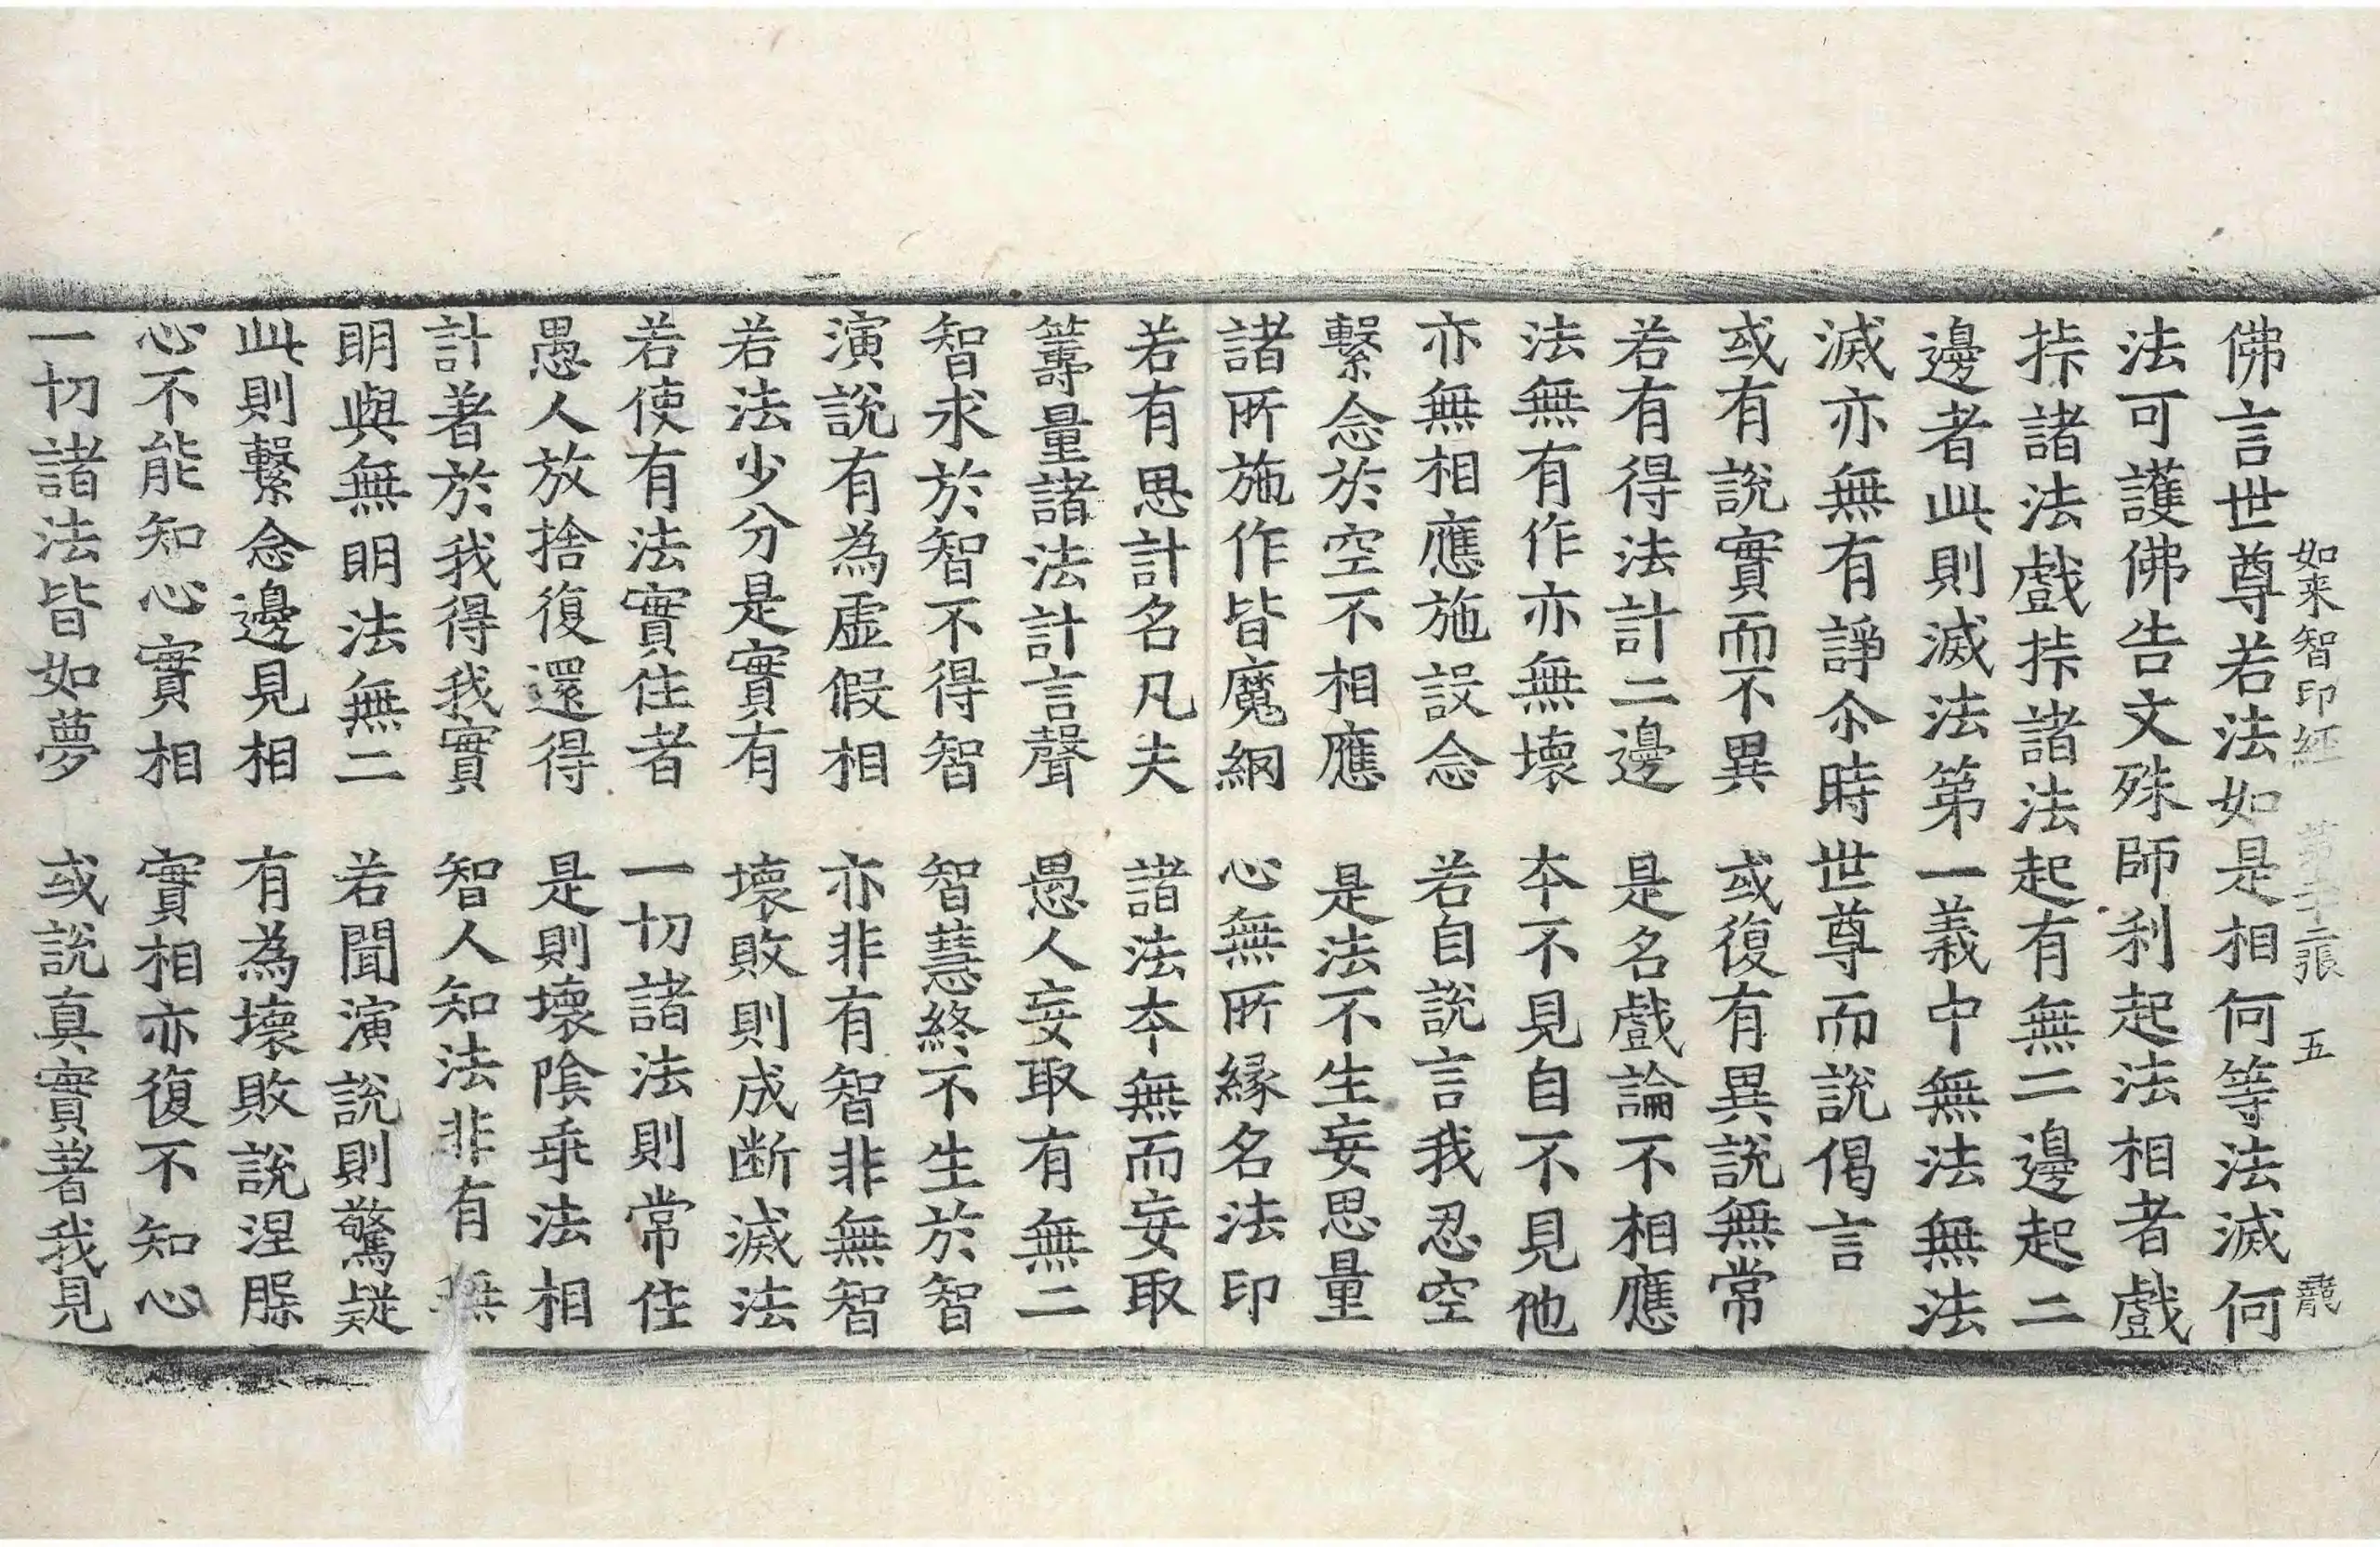 如来智印経 第十二張 五 龍
佛言世尊若法如是相何等法滅何
法可護佛告文殊師利起法相者戲
㧻諸法戲㧻諸法起有無二邊起二
邊者此則滅法第一義中無法無法
滅亦無有諍尒時世尊而說偈言
或有說實而不異 或復有異說無常
若有得法計二邊 是名戲論不相應
法無有作亦無壞 夲不見自不見他
亦無相應施設念 若自說言我忍空
繫念於空不相應 是法不生妄思量
諸所施作皆魔網 心無所緣名法印
若有思計名凡夫 諸法夲無而妄取
籌量諸法計言聲 愚人妄取有無二
智求於智不得智 智慧終不生於智
演說有為虛假相 亦非有智非無智
若法少分是實有 壞敗則成断滅法
若使有法實住者 一切諸法則常住
愚人放捨復還得 是則壞陰乖法相
計著於我得我實 智人知法非有無
明與無明法無二 若聞演說則驚疑
此則繫念邊見相 有為壞敗說涅槃
心不能知心實相 實相亦復不知心
一切諸法皆如夢 或說真實著我見